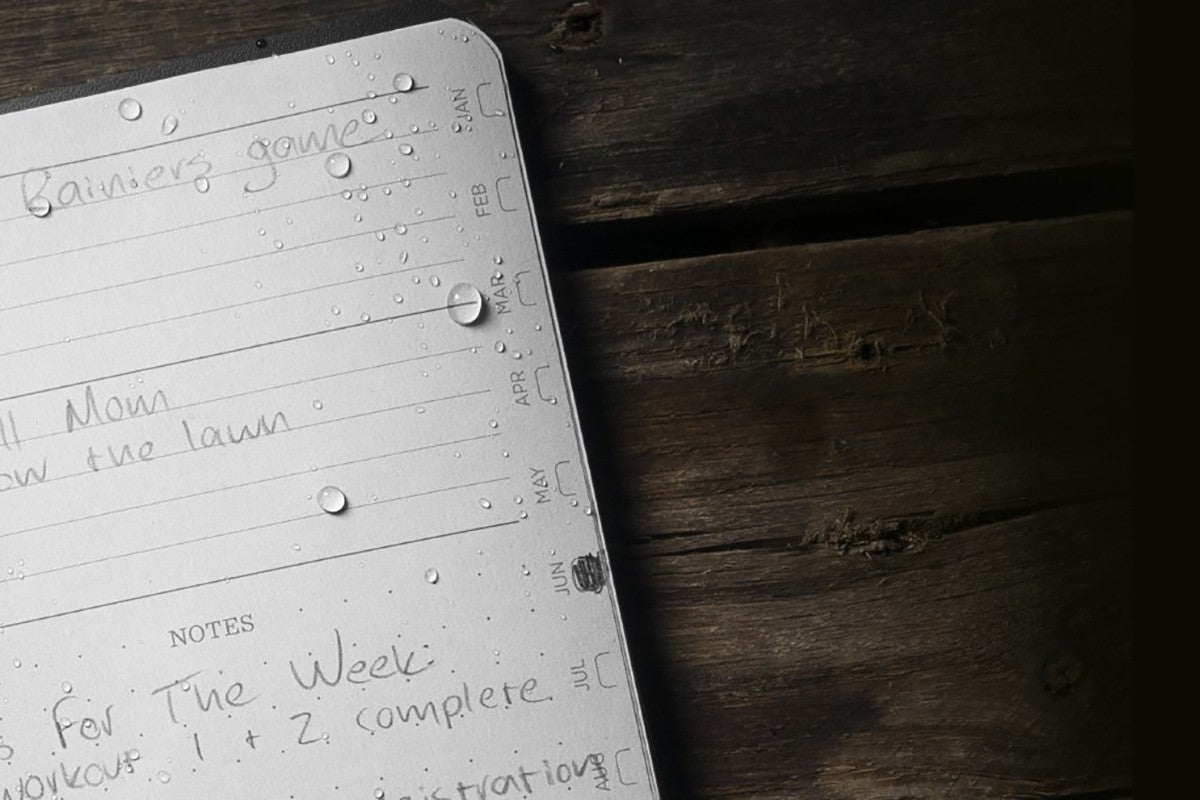 Rainiers game
JAN
FEB
MAR
APR
ll Mom
ow the lawn
MAY
JUN
NOTES
s For The Week:
workout 1 + 2 complete
JUL
istration
AUG